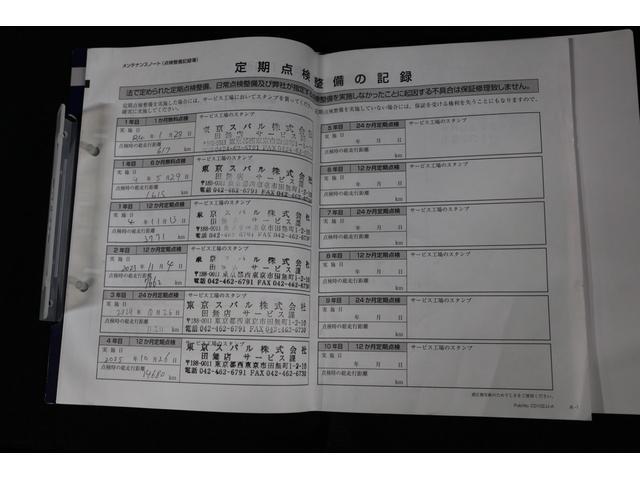 メンテナンスノート(点検整備記録簿)
定期点検整備の記録
法で定められた定期点検整備、日常点検整備及び弊社が指定する
整備を実施しなかったことに起因する不具合は保証修理致しません。
定期点検整備を実施した場合には、サービス工場においてスタンプを
確実に実施してください。
を実施していない場合には、保証を受ける権利を失うこともありますので、
1年目 1か月無料点検
サービス工場のスタンプ
実施日
R4年1月29日
点検時の総走行距離
617 km
東京スバル株式会社
田無店 サービス課
電話 042-462-6791 FAX 042-462-6730
1年目 6か月無料点検
サービス工場のスタンプ
実施日
4年5月29日
点検時の総走行距離
1615 km
東京スバル株式会社
田無店 サービス課
〒188-0011 東京都西東京市田無町1-2-10
電話 042-462-6791 FAX 042-462-6730
1年目 12か月定期点検
サービス工場のスタンプ
実施日
4年11月13日
点検時の総走行距離
3771 km
東京スバル株式会社
田無店 サービス課
〒188-0011
電話 042-462-6791 FAX 042-462-6730
2年目 12か月定期点検
サービス工場のスタンプ
実施日
2023年11月4日
点検時の総走行距離
7662 km
東京スバル株式会社
サービス課
〒188-0011 東京都西東京市田無町1-2-10
電話 042-462-6791 FAX 042-462-6730
3年目 24か月定期点検
サービス工場のスタンプ
実施日
2024年10月26日
点検時の総走行距離
km
東京スバル株式会社
田無店 サービス課
〒188-0011 東京都西東京市田無町1-2-10
電話 042-462-6791 FAX 042-462-6730
4年目 12か月定期点検
サービス工場のスタンプ
実施日
2025年10月26日
点検時の総走行距離
14680 km
東京スバル株式会社
田無店 サービス課
〒188-0011 東京都西東京市田無町1-2-10
電話 042-462-6791 FAX 042-462-6730
5年目 24か月定期点検
サービス工場のスタンプ
実施日
年 月 日
点検時の総走行距離
km
6年目 12か月定期点検
サービス工場のスタンプ
実施日
年 月 日
点検時の総走行距離
km
7年目 24か月定期点検
サービス工場のスタンプ
実施日
年 月 日
点検時の総走行距離
km
8年目 12か月定期点検
サービス工場のスタンプ
実施日
年 月 日
点検時の総走行距離
km
9年目 24か月定期点検
サービス工場のスタンプ
実施日
年 月 日
点検時の総走行距離
km
10年目 12か月定期点検
サービス工場のスタンプ
実施日
年 月 日
点検時の総走行距離
km